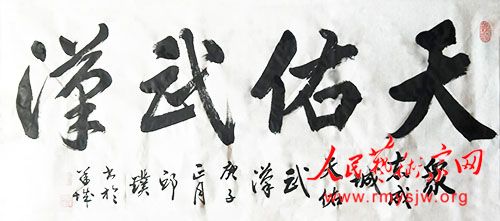 天佑武漢
眾
志成
城
天佑
武
漢
庚子
正月
邱
璞
書於
人民藝術家网
www.rmsjw.org